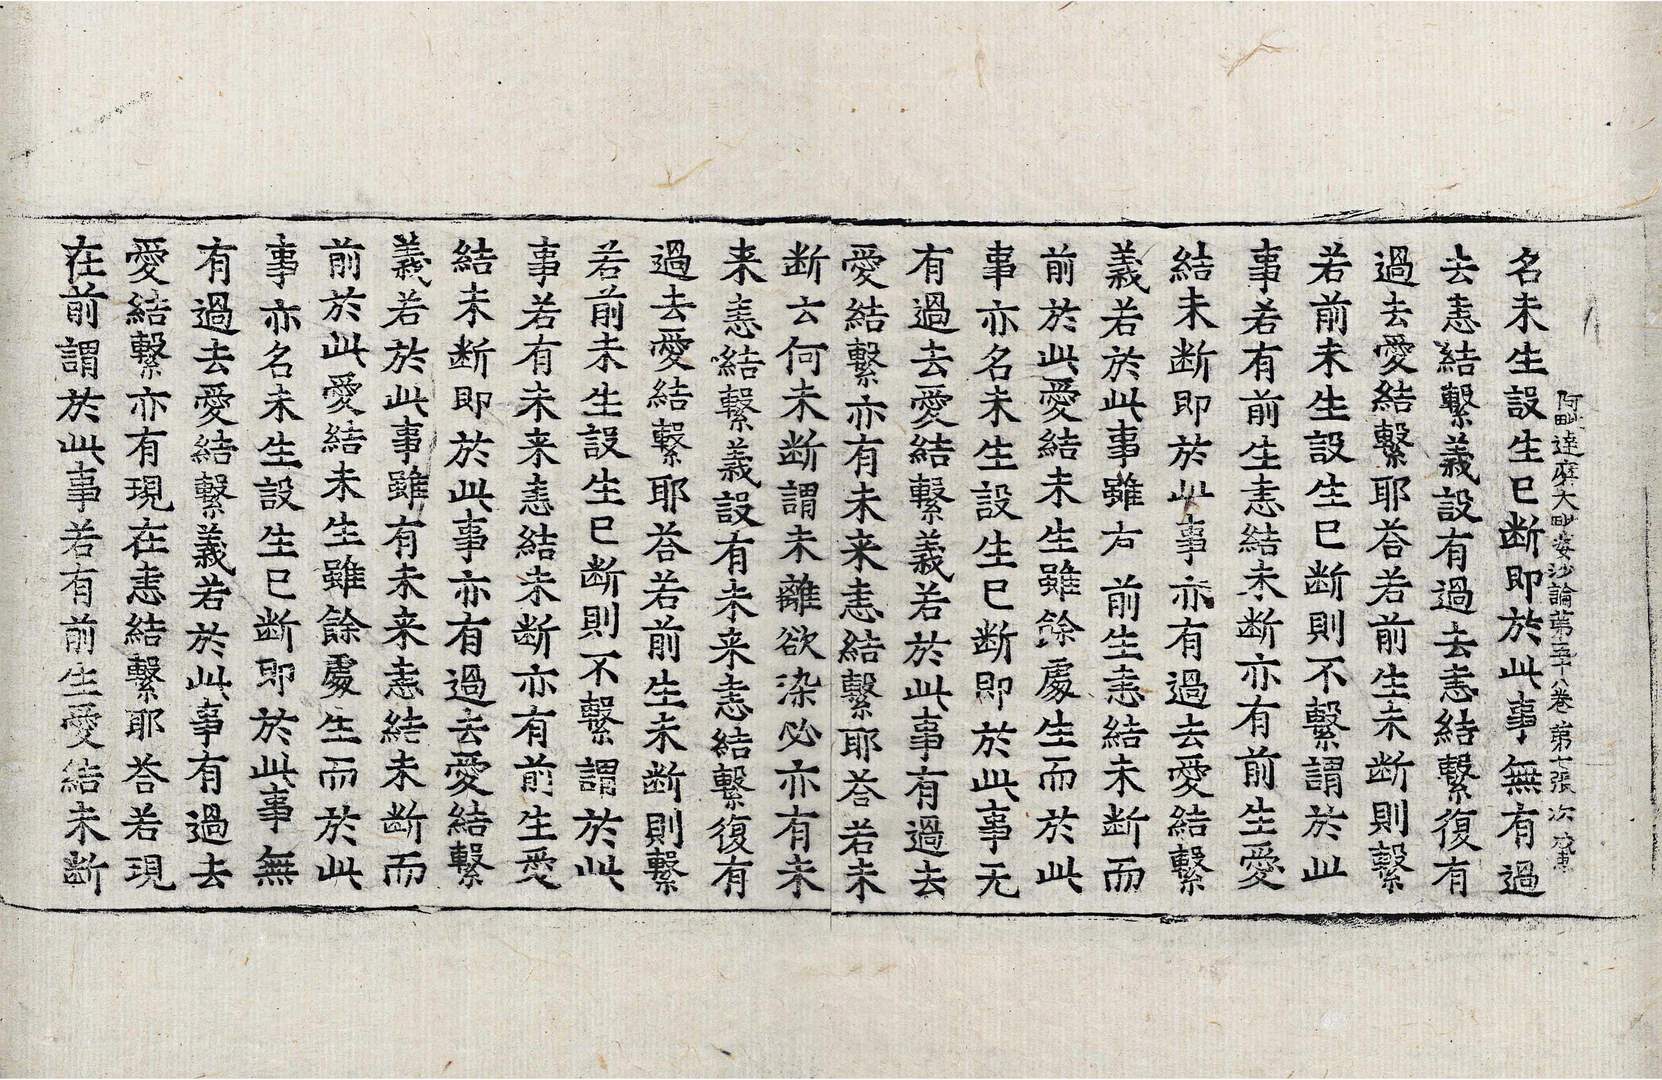 阿毗達磨大毗婆沙論第五十八卷 第七張 次
名未生設生已断即於此事無有過
去恚結繫義設有過去恚結繫復有
過去愛結繫耶荅若前生未断則繫
若前未生設生已断則不繫謂於此
事若有前生恚結未断亦有前生愛
結未断即於此事亦有過去愛結繫
義若於此事雖有前生恚結未断而
前於此愛結未生雖餘處生而於此
事亦名未生設生已断即於此事无
有過去愛結繫義若於此事有過去
愛結繫亦有未来恚結繫耶荅若未
断云何未断謂未離欲染必亦有未
来恚結繫義設有未来恚結繫復有
過去愛結繫耶荅若前生未断則繫
若前未生設生已断則不繫謂於此
事若有未来恚結未断亦有前生愛
結未断即於此事亦有過去愛結繫
義若於此事雖有未来恚結未断而
前於此愛結未生雖餘處生而於此
事亦名未生設生已断即於此事無
有過去愛結繫義若於此事有過去
愛結繫亦有現在恚結繫耶荅若現
在前謂於此事若有前生愛結未断